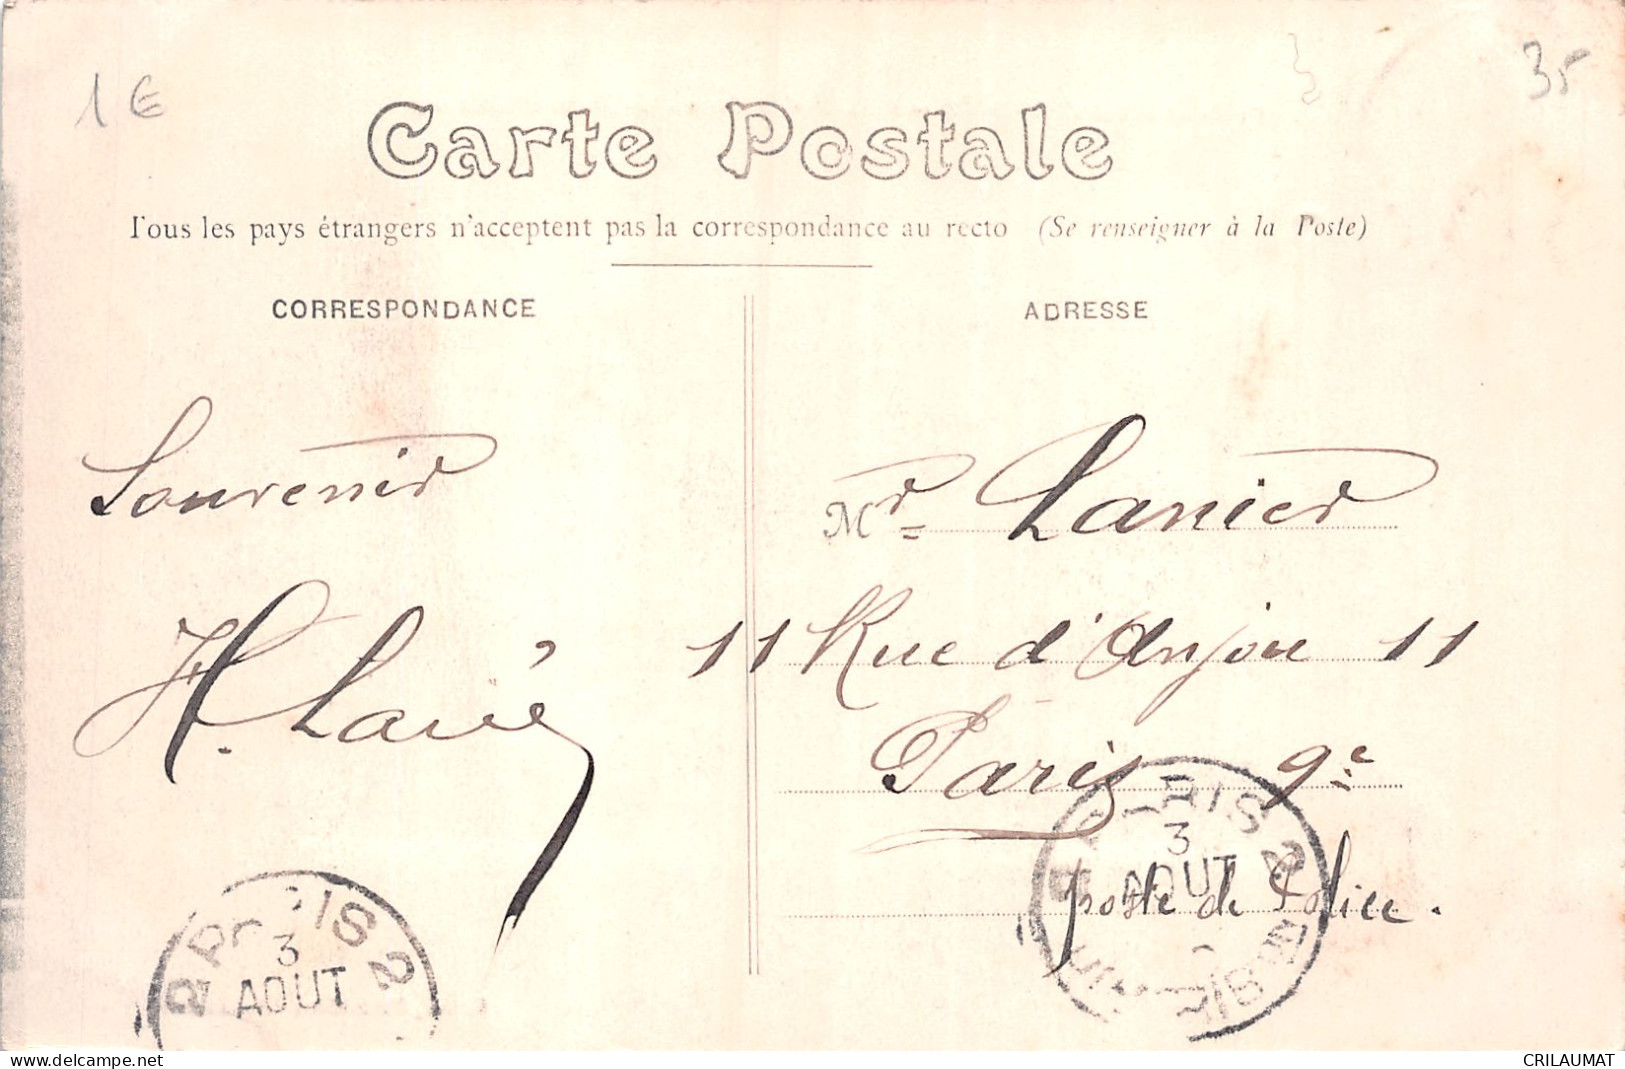 1 €
35
Carte Postale
Tous les pays étrangers n'acceptent pas la correspondance au recto (Se renseigner à la Poste)
CORRESPONDANCE
ADRESSE
Souvenir
Mr Lanier
11 Rue d'Anjou 11
H. Lavié
Paris 9e
poste de Police.
PARIS 2
3
AOUT
PARIS 2
3
AOUT
https://www.delcampe.net
CRILAUMAT